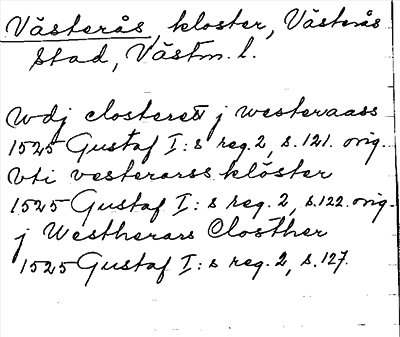 Västerås, kloster, Västerås
stad, Västm. l.
wdj closteret j westeraass
1525 Gustaf I:s reg. 2, s. 121. orig.
vti vesterarss klöster
1525 Gustaf I:s reg. 2, s. 122. orig.
j Westherars Closther
1525 Gustaf I:s reg. 2, s. 127.